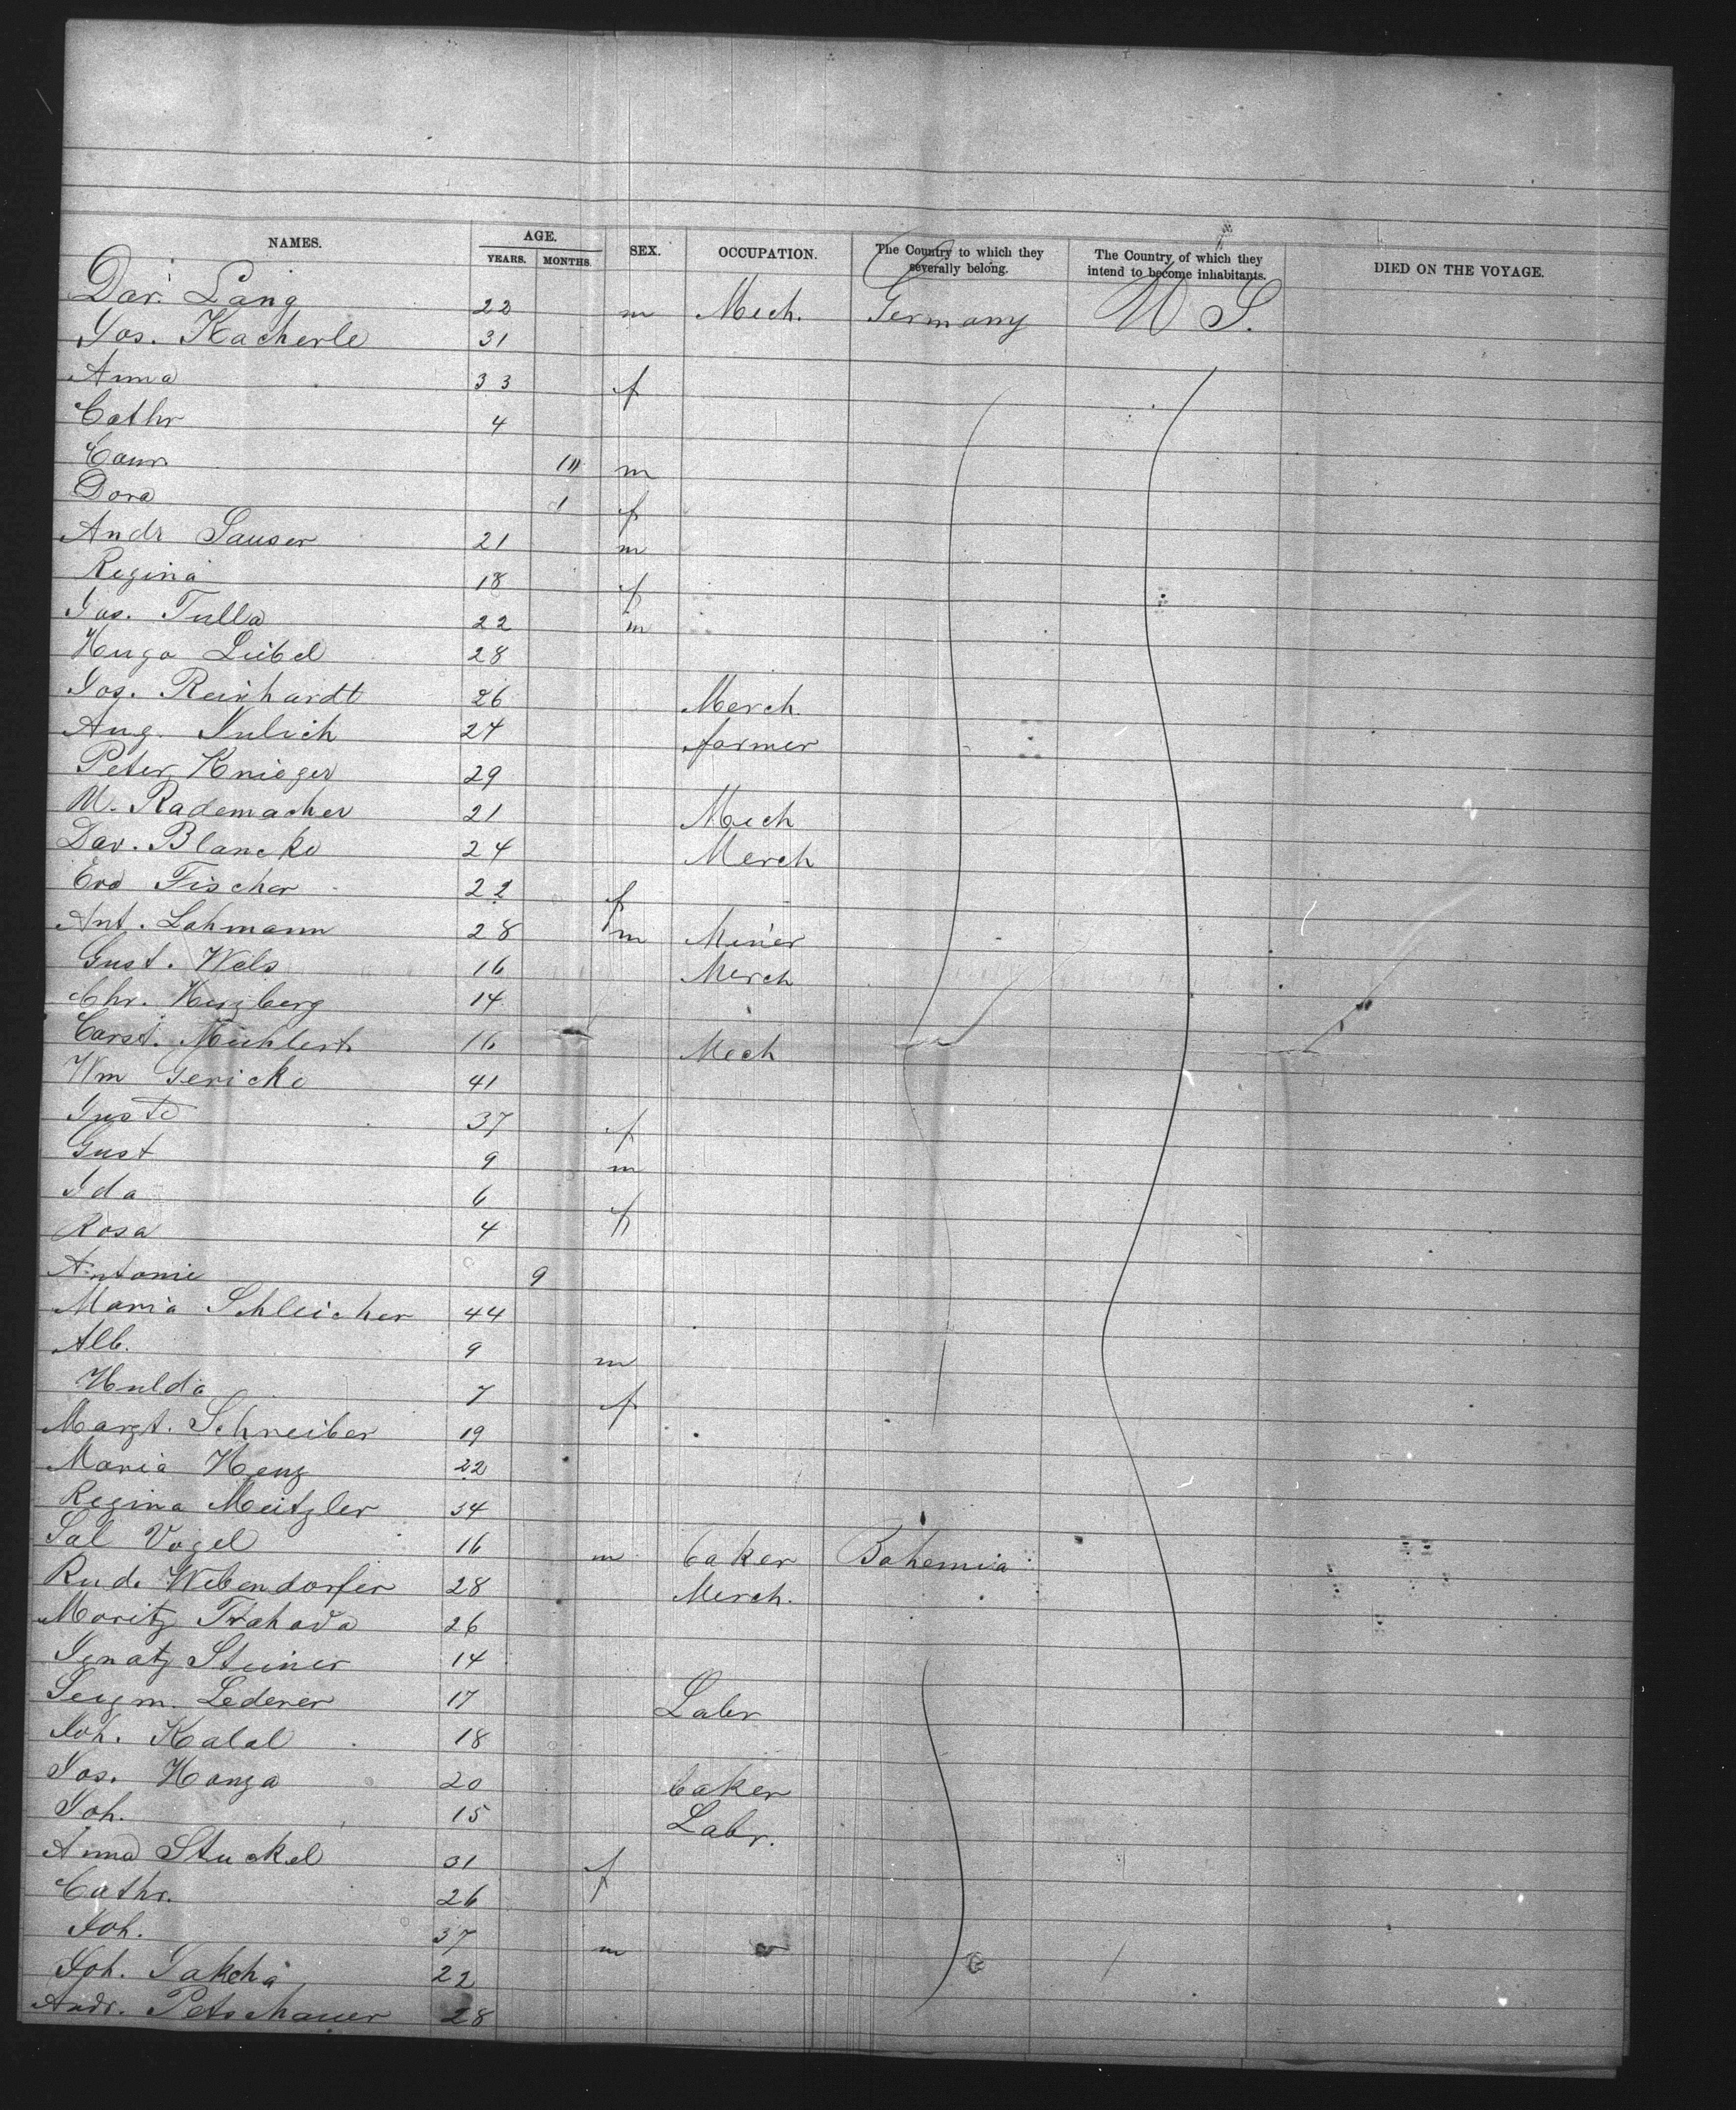 NAMES. AGE. YEARS. MONTHS. SEX. OCCUPATION. The Country to which they severally belong. The Country of which they intend to become inhabitants. DIED ON THE VOYAGE.
Dav. Lang 22 m Mech. Germany U S.
Jos. Kacherle 31
Anna 33 f
Cathr 4
m
Dora 1 f
Andr Sauser 21 m
Regina 18 f
Jos. Tulla 22 m
Hugo Liebel 28
Jos. Reinhardt 26 Merch.
Aug. Julich 24 farmer
Peter Knieger 29
M. Rademacher 21 Mech
Dav. Blancke 24 Merch
Eva Fischer 22 f
Ant. Lohmann 28 m Miner
Gust. Wels 16 Merch
Chr. Herzberg 14
Carst. 16 Mech
Wm Gericke 41
Juste 37 f
Gust 9 m
Ida 6 f
Rosa 4
Antonie 9
Maria Schleicher 44
Alb. 9 m
Hulda 7 f
Margt. Schreiber 19
Maria Henz 22
Regina Meitzler 34
Sal Vogel 16 m baker Bohemia
Rud. Webendorfer 28 Merch.
Moritz 26
Ignatz Steiner 14
Seigm. Lederer 17 Labr
Joh. Kalal 18
Jos. Honza 20 baker
Joh. 15 Labr.
Anna Stuckel 31 f
Cathr. 26
Joh. 37 m
Joh. 22
Andr. Petschauer 28